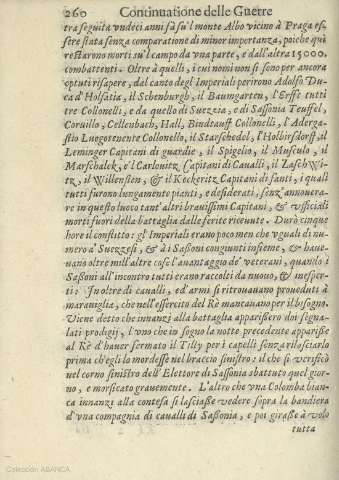 260 Continuatione delle Guerre
tra seguita vndeci anni sà sù'l monte Albo vicino à Praga es-
sere stata senza comparatione di minor importanza, poiche qui
restarono morti sù'l campo da vna parte, e dall'altra 15000.
combattenti. Oltre à quelli, i cui nomi non si sono per ancora
optuti risapere, dal canto degl'Imperiali perirono Adolfo Du-
ca d'Holsatia, il Schenburgh, il Baumgarten, l'Erst: tutti
tre Collonelli, e da quello di Suezzia, e di Sassonia Teuffel,
Coruillo, Cellenbach, Hall, Bindtauff Collonelli, l'Aderga-
stio Luogotenente Collonello, il Starschedel, l'Holbirsdorff, il
Leminger Capitani di guardie, il Spigelio, il Musculo, il
Marschalek, e'l Carlouitz Capitani di Caualli, il Laschwi-
tz, il Willensten, & il Keckeritz Capitani di fanti, i quali
tutti furono lungamente pianti, e desiderati, senz'annouera-
re in questo luoco tant'altri brauissimi Capitani, & vfficiali
morti fuori della battaglia dalle ferite riceuute. Durò cinque
hore il conflitto: gl'Imperiali erano poco men che vguali di nu-
mero a' Suezzesi, & à i Sassoni congiunti insieme, & haue-
uano oltre mill'altre cose l'auantaggio de' veterani, quando i
Sassoni all'incontro tutti erano raccolti da nuouo, & inesper-
ti: Inoltre di caualli, ed'armi si ritrouauano proueduti à
marauiglia, che nell'essercito del Rè mancauano per il bisogno.
Viene detto che innanzi alla battaglia apparissero doi segna-
lati prodigij, l'vno che in sogno la notte precedente apparisse
al Rè d'hauer fermato il Tilly per i capelli senza rilasciarlo
prima ch'egli lo mordesse nel braccio sinistro: il che si verificò
nel corno sinistro dell'Elettore di Sassonia sbattuto quel gior-
no, e morsicato grauemente. L'altro che vna Colomba bian-
ca innanzi alla contesa si lasciasse vedere sopra la bandiera
d'vna compagnia di caualli di Sassonia, e poi girasse à volo
tutta
Colección ABANCA